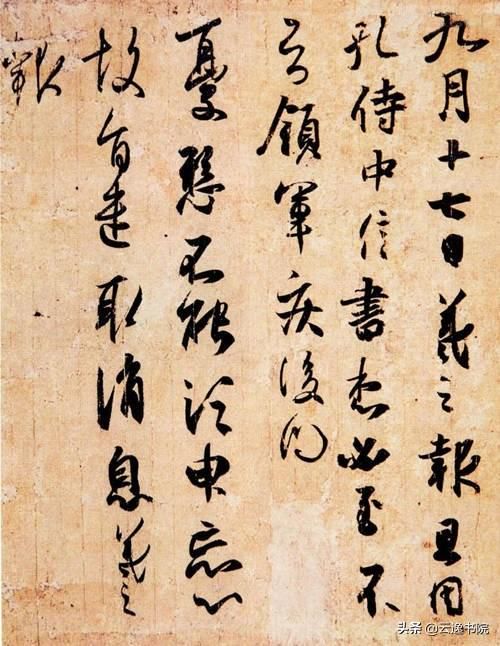 九月十七日羲之報且因
孔侍中信書想必至不
知領軍疾後問
憂懸不能須臾忘心
故旨遣取消息羲之
報
头条 @云逸书院